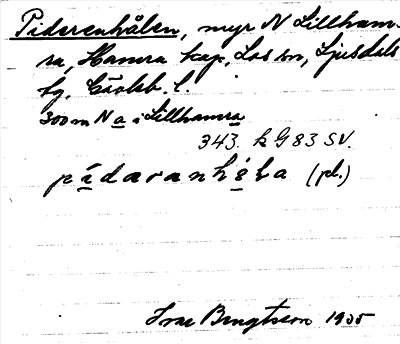 Piderenhålen, myr N Lillham-
ra, Hamra kap, Los sn, Ljusdals
tg, Gävleb. l.
300 m N a i Lillhamra
343. k G 83 SV.
pídaranhóla (pl.)
Ivar Bengtsson 1935